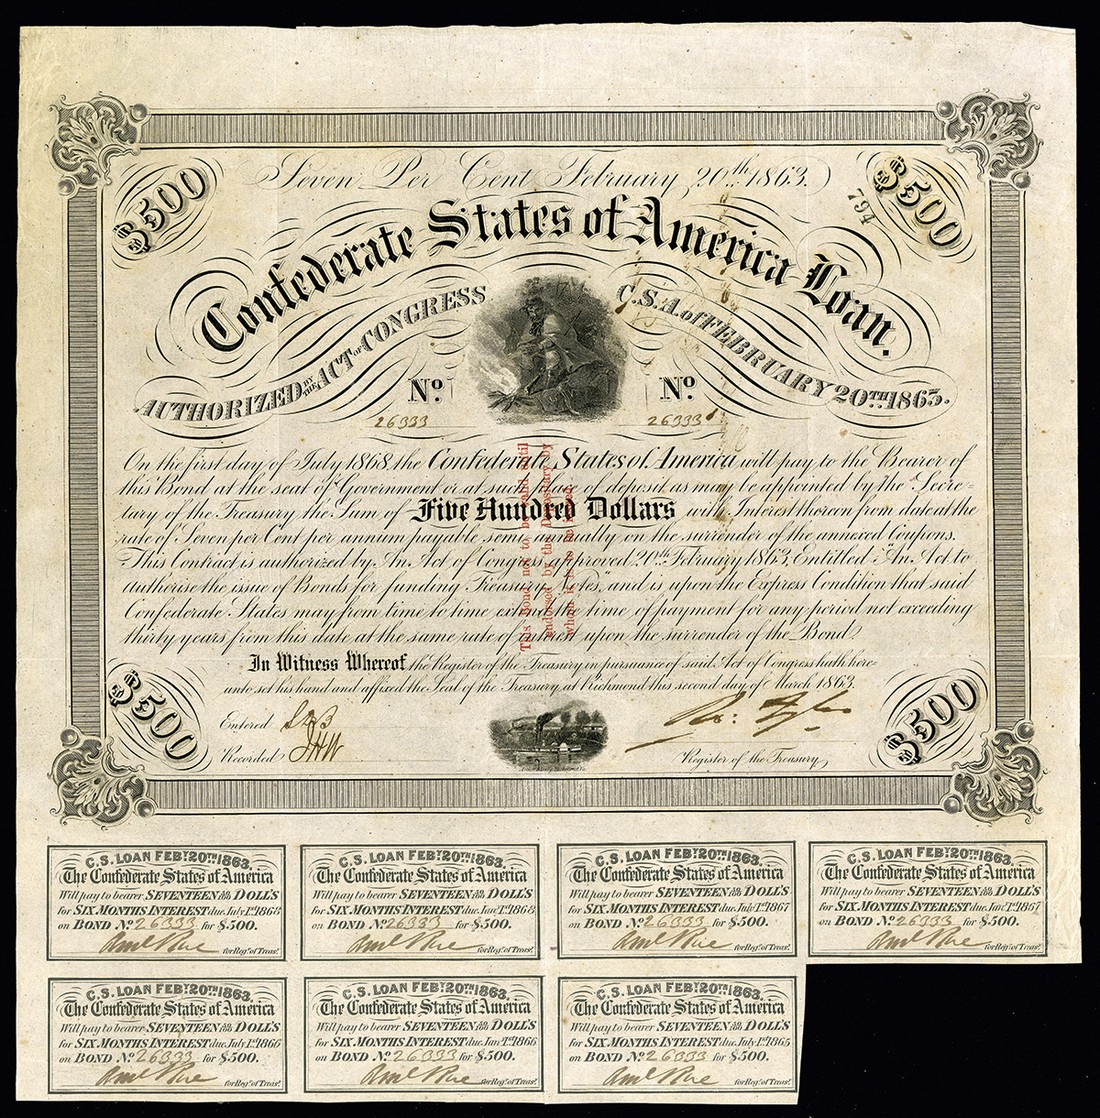 Seven Per Cent February 20th 1863.
$500
$500
794
Confederate States of America Loan.
AUTHORIZED BY THE ACT OF CONGRESS C.S.A. of FEBRUARY 20TH 1863.
No. No.
26333 26333
On the first day of July 1868, the Confederate States of America will pay to the Bearer of
this Bond at the seat of Government or at such place of deposit as may be appointed by the Secre-
tary of the Treasury the Sum of Five Hundred Dollars with Interest thereon from date at the
rate of Seven per Cent per annum payable semi annually on the surrender of the annexed Coupons.
This Contract is authorized by An Act of Congress, approved 20th February 1863, Entitled "An Act to
authorise the issue of Bonds for funding Treasury Notes," and is upon the Express Condition that said
Confederate States may from time to time extend the time of payment for any period not exceeding
thirty years from this date at the same rate of interest upon the surrender of the Bond.
This Bond not to be valid until
endorsed by the Depositary by
whom it is to be issued.
In Witness Whereof, the Register of the Treasury in pursuance of said Act of Congress hath here-
unto set his hand and affixed the Seal of the Treasury at Richmond this second day of March 1863.
$500
$500
Entered
Recorded JHW
Ro: Tyler
Register of the Treasury
C.S. LOAN FEBY 20TH 1863.
The Confederate States of America
Will pay to bearer SEVENTEEN 50/100 DOLL'S
for SIX MONTHS INTEREST due July 1st 1868
on BOND No. 26333 for $500.
for Regr. of Treasy.
C.S. LOAN FEBY 20TH 1863.
The Confederate States of America
Will pay to bearer SEVENTEEN 50/100 DOLL'S
for SIX MONTHS INTEREST due Jany 1st 1868
on BOND No. 26333 for $500.
for Regr. of Treasy.
C.S. LOAN FEBY 20TH 1863.
The Confederate States of America
Will pay to bearer SEVENTEEN 50/100 DOLL'S
for SIX MONTHS INTEREST due July 1st 1867
on BOND No. 26333 for $500.
for Regr. of Treasy.
C.S. LOAN FEBY 20TH 1863.
The Confederate States of America
Will pay to bearer SEVENTEEN 50/100 DOLL'S
for SIX MONTHS INTEREST due Jany 1st 1867
on BOND No. 26333 for $500.
for Regr. of Treasy.
C.S. LOAN FEBY 20TH 1863.
The Confederate States of America
Will pay to bearer SEVENTEEN 50/100 DOLL'S
for SIX MONTHS INTEREST due July 1st 1866
on BOND No. 26333 for $500.
for Regr. of Treasy.
C.S. LOAN FEBY 20TH 1863.
The Confederate States of America
Will pay to bearer SEVENTEEN 50/100 DOLL'S
for SIX MONTHS INTEREST due Jany 1st 1866
on BOND No. 26333 for $500.
for Regr. of Treasy.
C.S. LOAN FEBY 20TH 1863.
The Confederate States of America
Will pay to bearer SEVENTEEN 50/100 DOLL'S
for SIX MONTHS INTEREST due July 1st 1865
on BOND No. 26333 for $500.
for Regr. of Treasy.